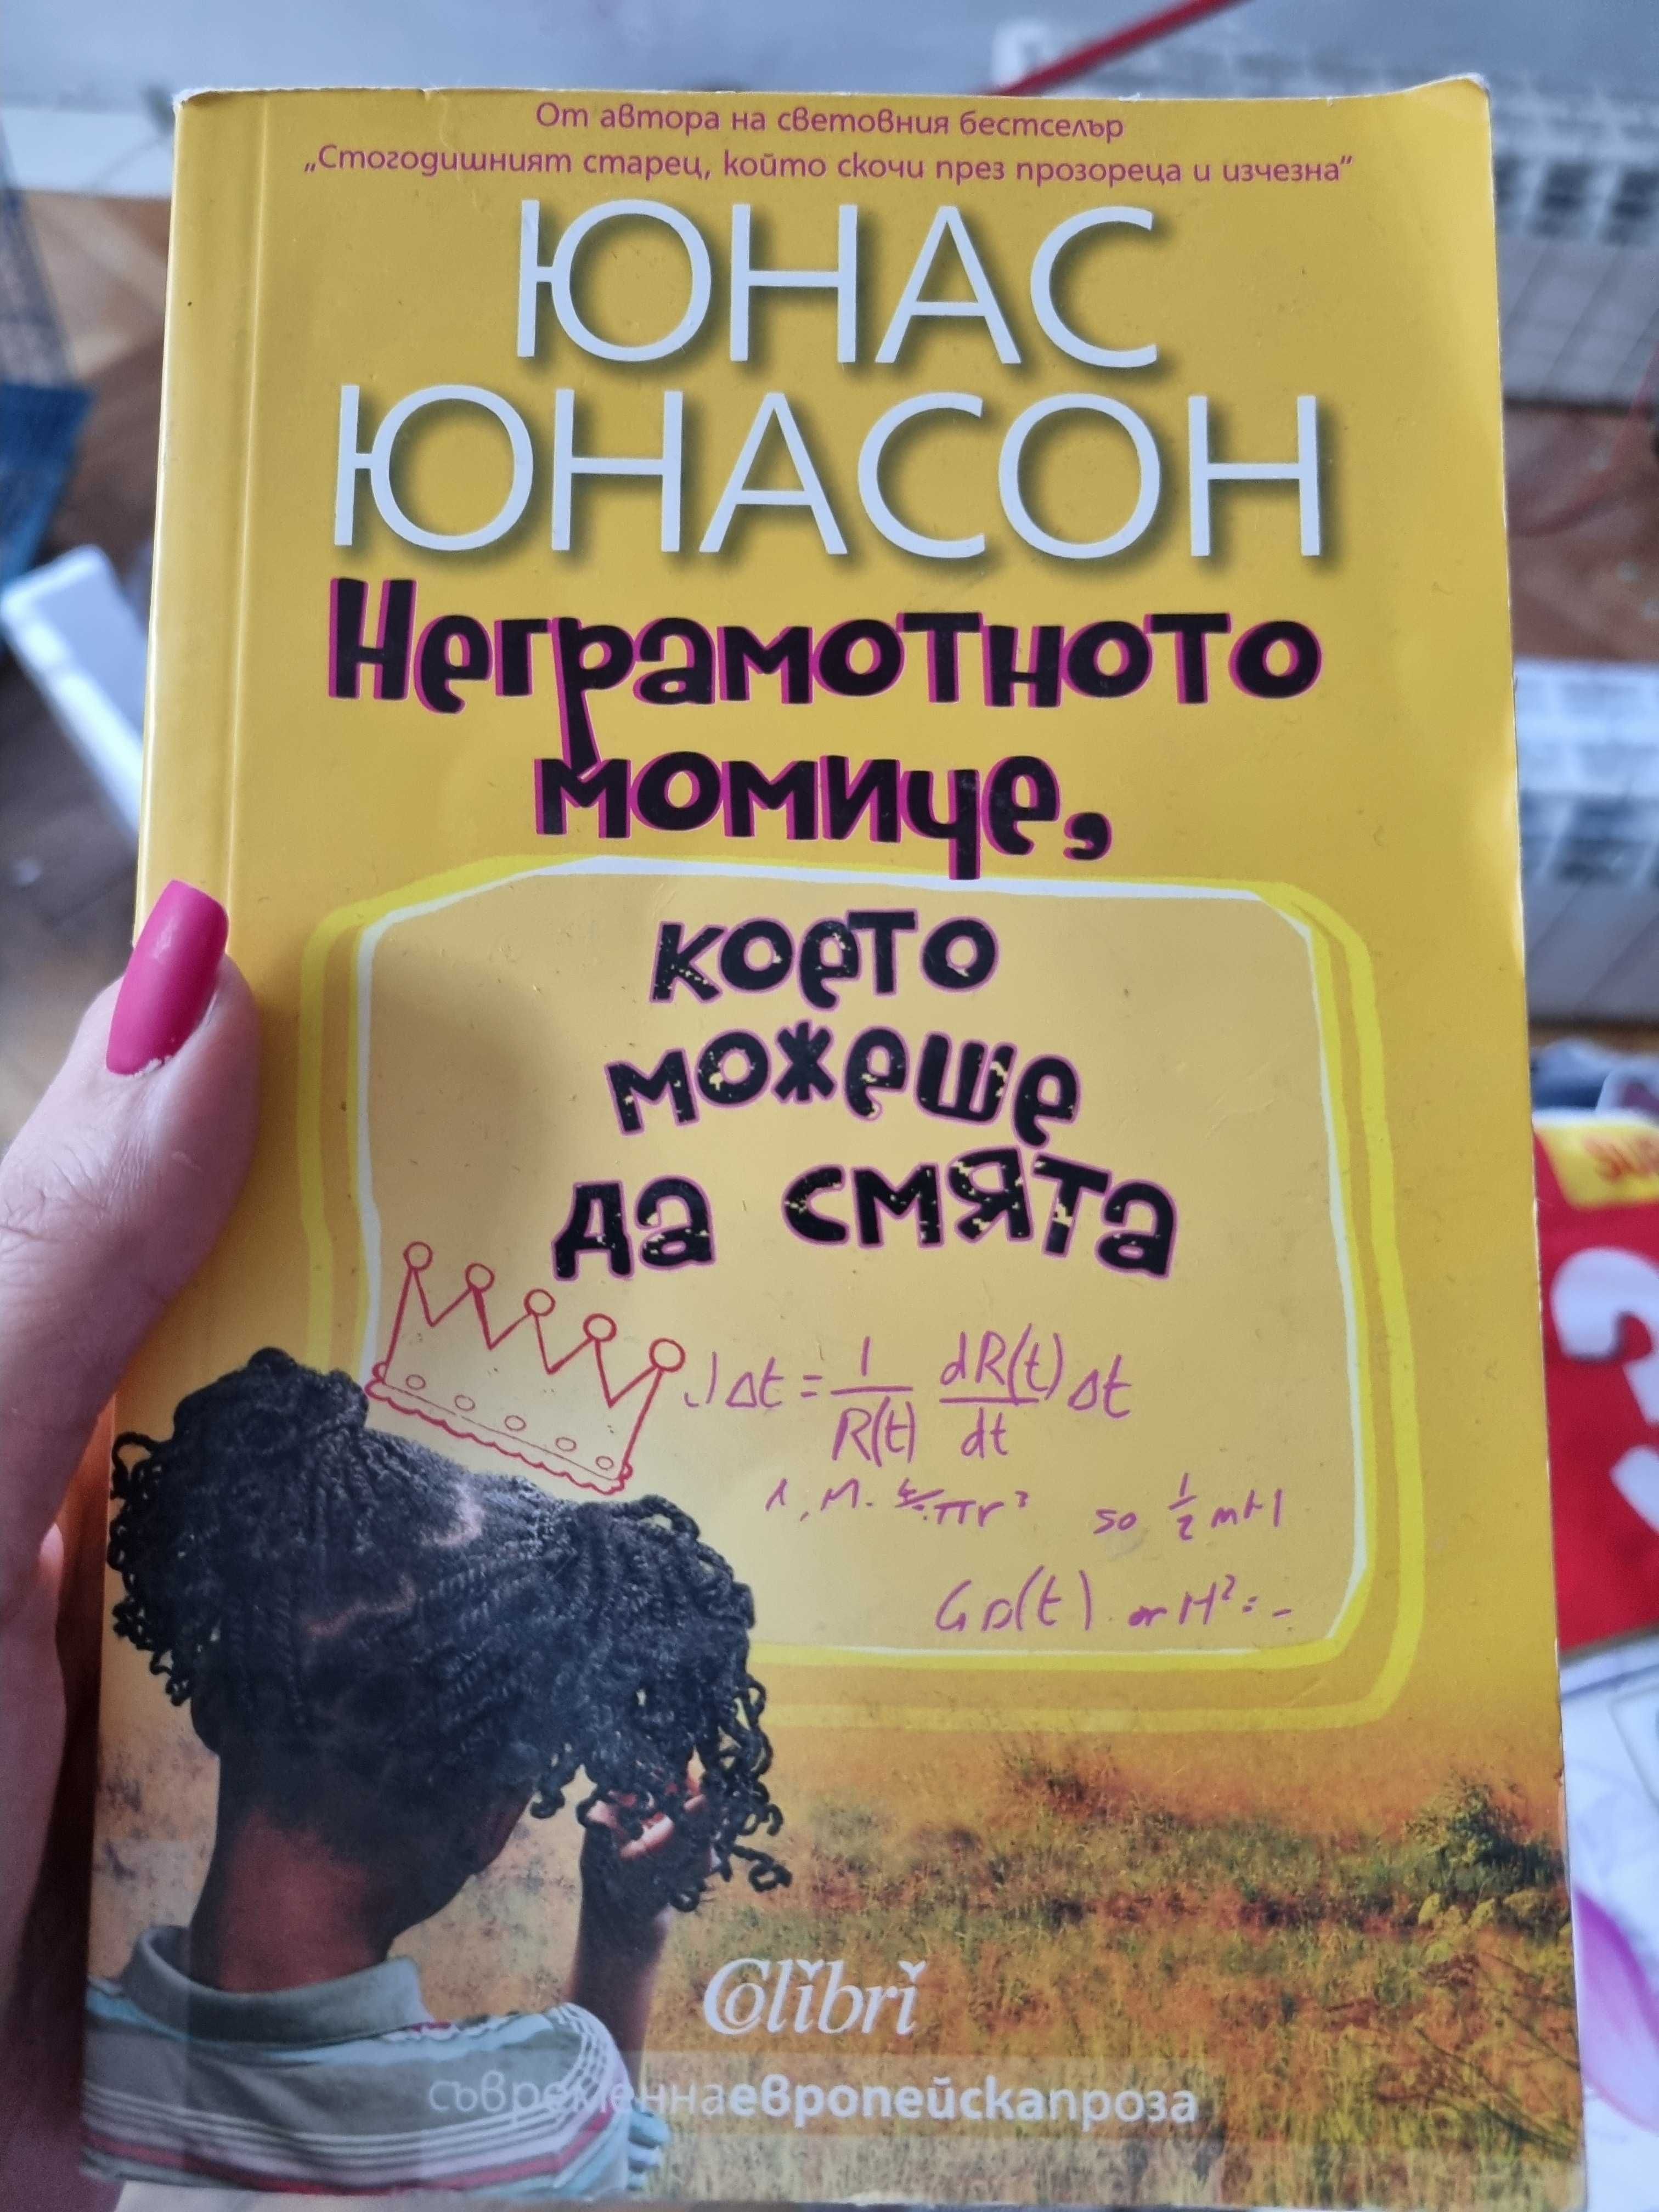 От автора на световния бестселър
„Стогодишният старец, който скочи през прозореца и изчезна“
ЮНАС
ЮНАСОН
Неграмотното
момиче,
което
можеше
да смята
Δt = 1/R(t) dR(t)/dt Δt
πr³ so ½
(t) or H² =
Colibri
съвременнаевропейскапроза